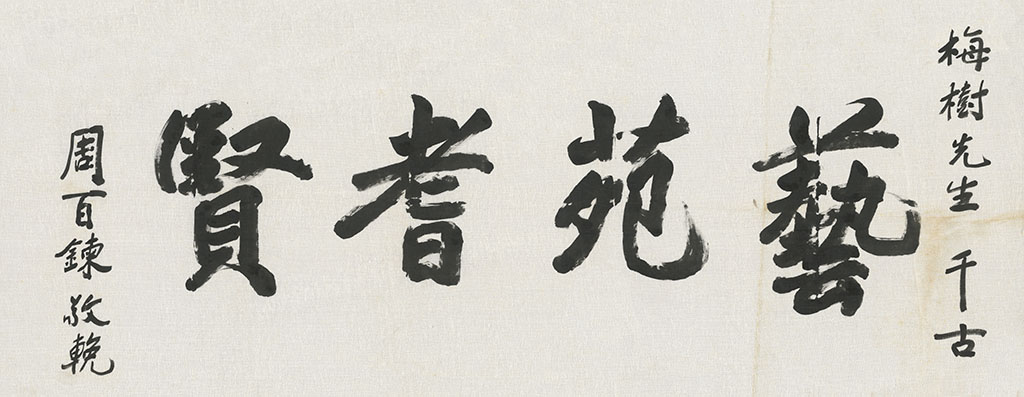 梅樹先生 千古
藝苑耆賢
周百鍊敬輓